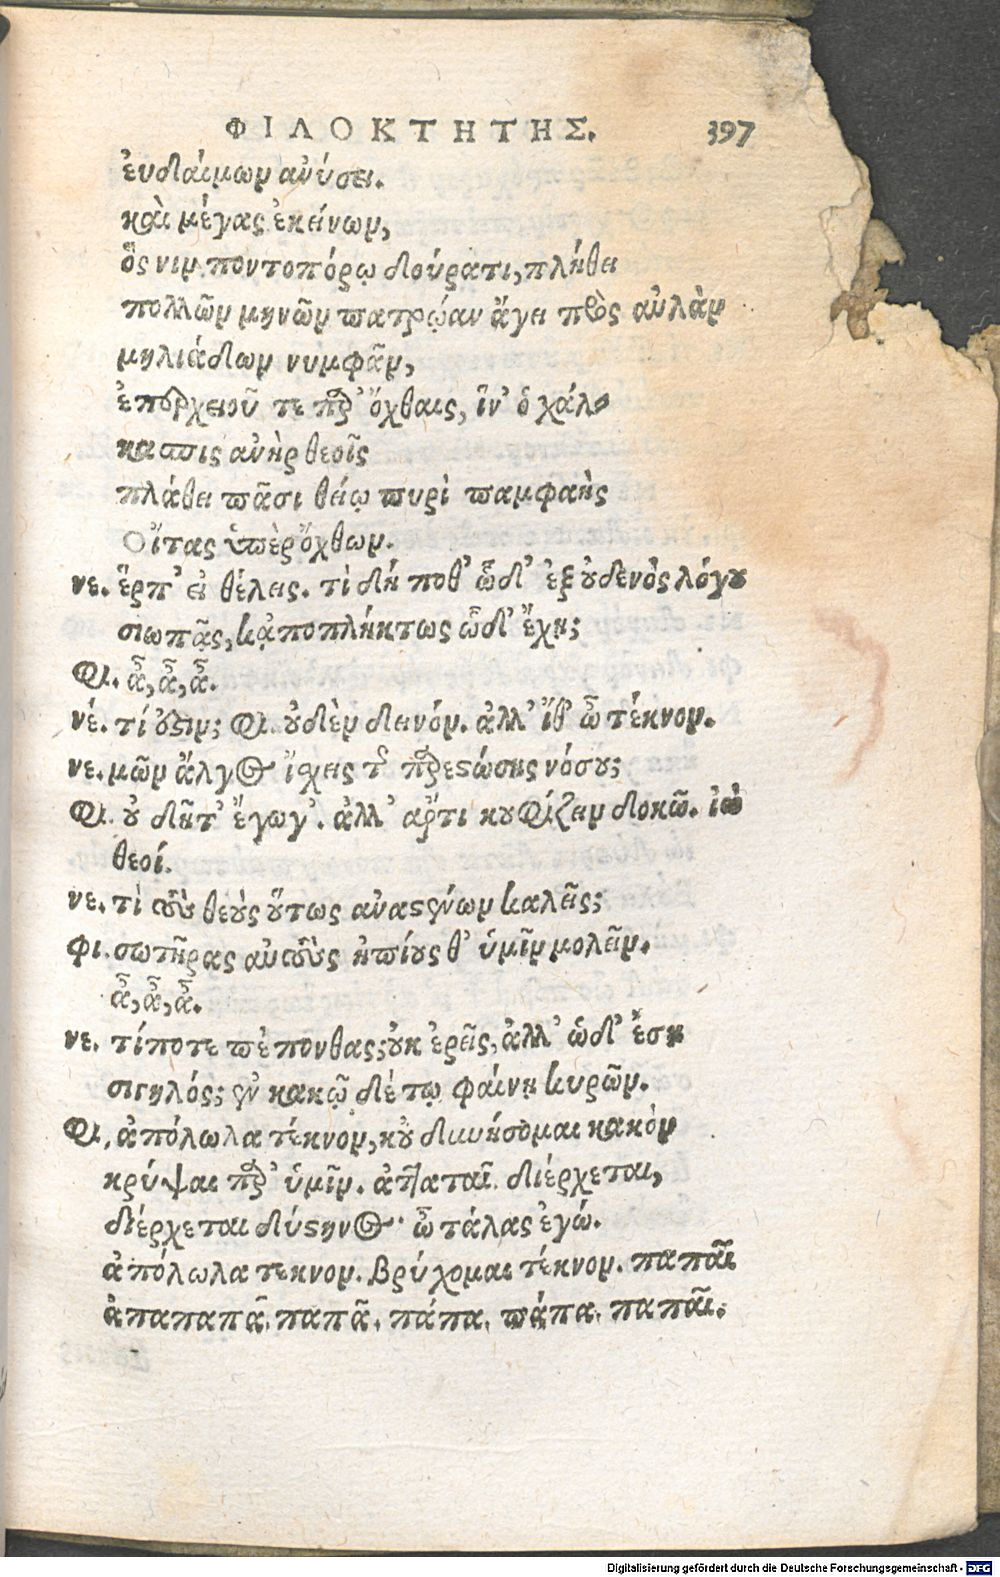 ΦΙΛΟΚΤΗΤΗΣ. 397
ἐυδαίμων ἀνύσει.
καὶ μέγας ἐκείνων,
ὅς νιν ποντοπόρῳ δούρατι, πλήθει
πολλῶν μηνῶν πατρῴαν ἄγει πρὸς αὐλὰν
μηλιάδων νυμφᾶν,
σπερχειοῦ τε παρ' ὄχθαις, ἵν' ὁ χάλ-
κασπις ἀνὴρ θεοῖς
πλάθει πᾶσι θείῳ πυρὶ παμφαὴς
Οἴτας ὑπὲρ ὄχθων.
νε. ἕρπ' εἰ θέλεις. τὶ δή ποθ' ὧδ' ἐξ οὐδενὸς λόγου
σιωπᾷς, κᾀποπλήκτως ὧδ' ἔχῃ;
φι. ἆ, ἆ, ἆ.
νέ. τί ἐστιν; φι. οὐδὲν δεινόν. ἀλλ' ἴθ' ὦ τέκνον.
νε. μῶν ἄλγος ἴσχεις τῆς παρεστώσης νόσου;
φι. οὐ δῆτ' ἔγωγ'. ἀλλ' ἄρτι κουφίζειν δοκῶ. ἰὼ
θεοί.
νε. τὶ τοὺς θεοὺς οὕτως ἀναστένων καλεῖς;
φι. σωτῆρας αὐτοὺς ἠπίους θ' ὑμῖν μολεῖν.
ἆ, ἆ, ἆ.
νε. τίποτε πέπονθας; οὐκ ἐρεῖς, ἀλλ' ὧδ' ἔσῃ
σιγηλός; ἐν κακῷ δέ τῳ φαίνῃ κυρῶν.
φι. ἀπόλωλα τέκνον, κοὐ δυνήσομαι κακὸν
κρύψαι παρ' ὑμῖν. ἀτταταῖ. διέρχεται,
διέρχεται δύστηνος· ὦ τάλας ἐγώ.
ἀπόλωλα τέκνον. βρύχομαι τέκνον. παπαῖ
ἀπαπαπᾶ. παπᾶ. πάπα. πάπα. παπαῖ.
Digitalisierung gefördert durch die Deutsche Forschungsgemeinschaft - DFG